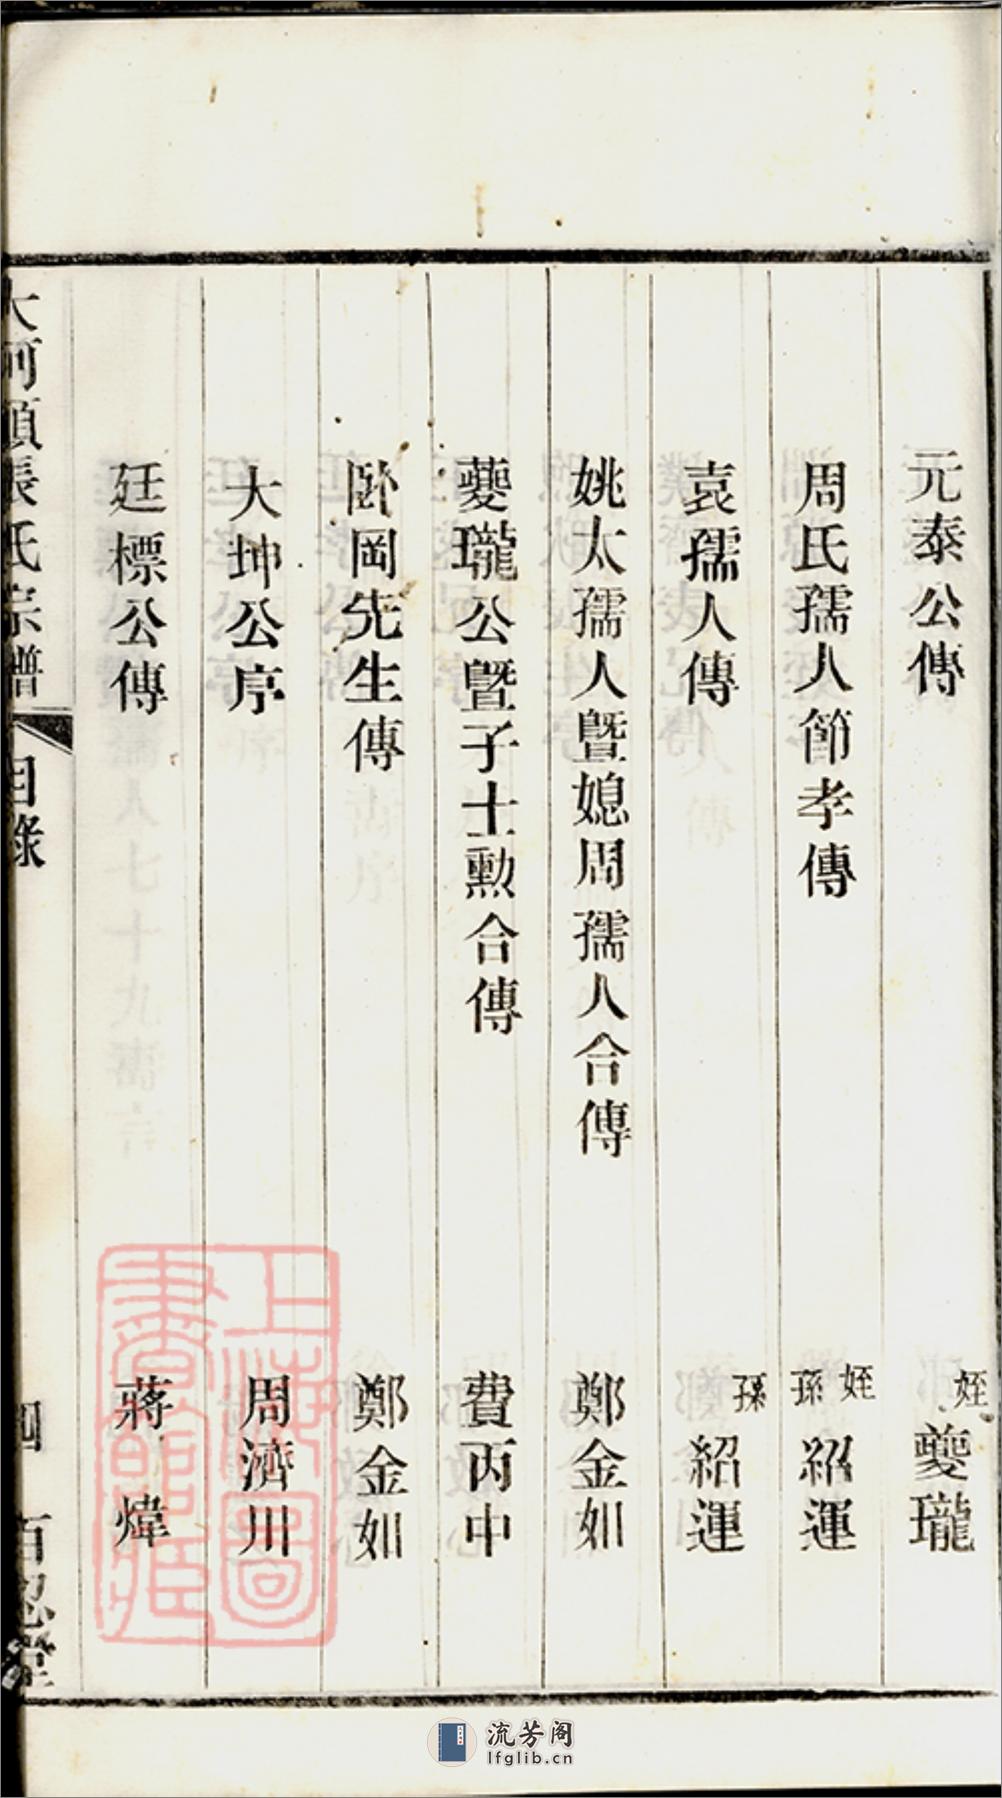 元泰公傳 姪夔瓏
周氏孺人節孝傳 姪孫紹運
袁孺人傳 孫紹運
姚太孺人暨媳周孺人合傳 鄭金如
夔瓏公暨子士勲合傳 費丙中
卧岡先生傳 鄭金如
大坤公序 周濟川
廷標公傳 蔣煒
大河頭張氏宗譜 目錄 四 百忍堂
上海圖書館藏
流芳阁
lfglib.cn